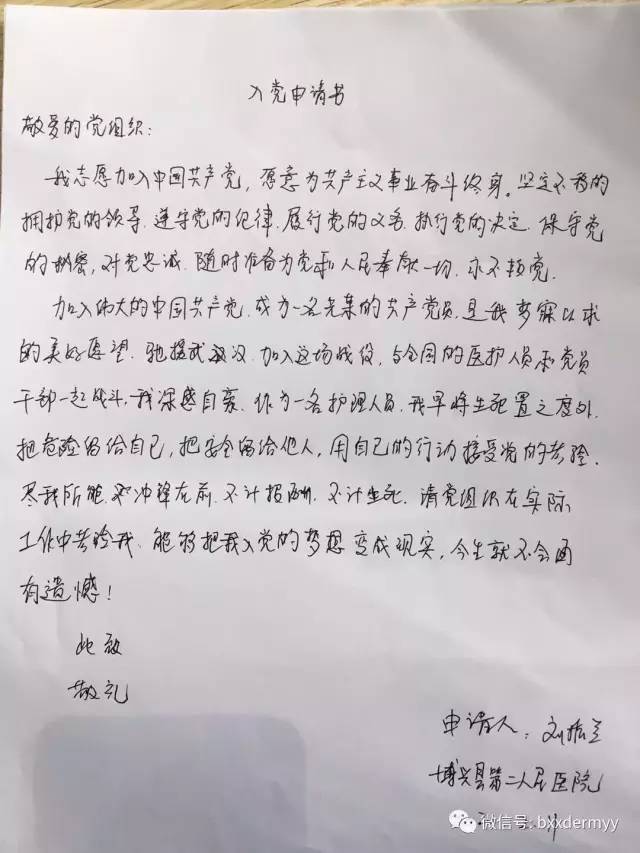 入党申请书
敬爱的党组织：
我志愿加入中国共产党，愿意为共产主义事业奋斗终身。坚定不移的
拥护党的领导．遵守党的纪律．履行党的义务．执行党的决定．保守党
的秘密，对党忠诚．随时准备为党和人民奉献一切．永不叛党．
加入伟大的中国共产党．成为一名光荣的共产党员．是我梦寐以求
的美好愿望．驰援武汉．加入这场战役．与全国的医护人员和党员
干部一起战斗．我深感自豪．作为一名护理人员．我早将生死置之度外．
把危险留给自己，把安全留给他人，用自己的行动接受党的考验．
尽我所能．冲锋在前．不计报酬．不计生死．请党组织在实际
工作中考验我．能够把我入党的梦想变成现实，今生就不会再
有遗憾！
此致
敬礼
申请人：刘振兰
博兴县第二人民医院
微信号: bxxdermyy